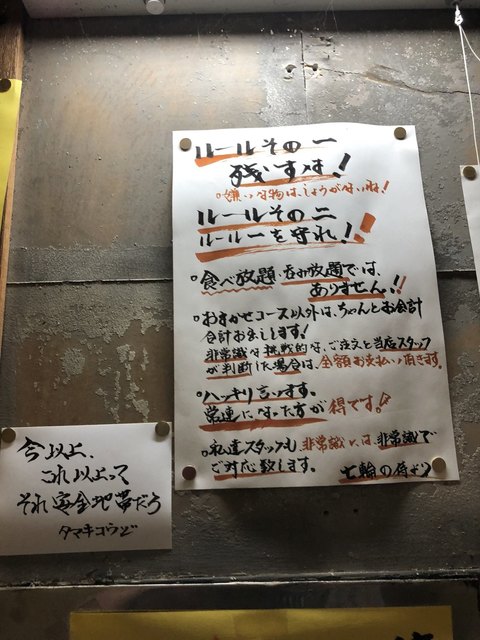 ルールその一
残すな!
○嫌いな物は、しょうがないね!
ルールその二
ルール一を守れ!!
○食べ放題・呑み放題では、
ありません!!
○おまかせコース以外は、ちゃんとお会計
会計お出しします!
非常識な挑戦的な、ご注文と当店スタッフ
が判断した場合は、全額お支払い頂きます。
○ハッキリ言います。
常連になった方が得です!
○私達スタッフも非常識には、非常識で
ご対応致します。
七輪の侍より
今以上、
これ以上って
それ安全地帯だろ
タマキコウジ